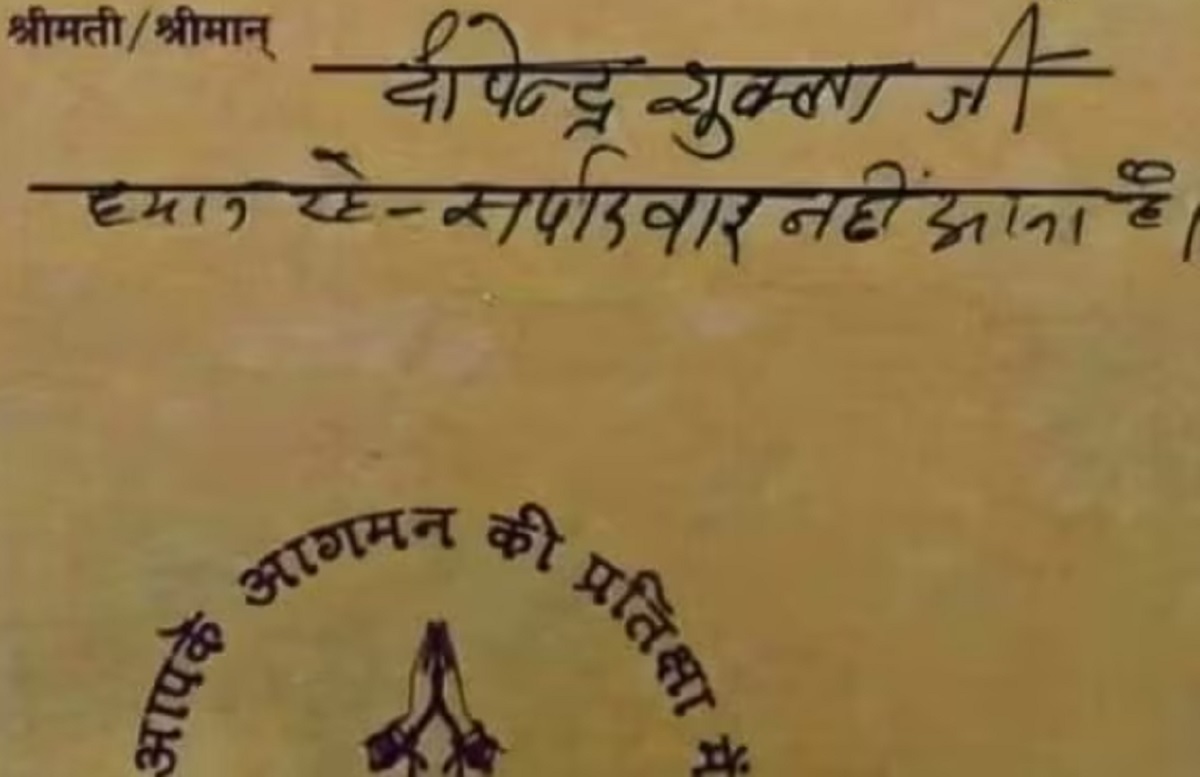 श्रीमती/श्रीमान्
दीपेन्द्र शुक्ला जी
ध्यान रहे-सपरिवार नहीं आना है।
आपके आगमन की प्रतिक्षा में